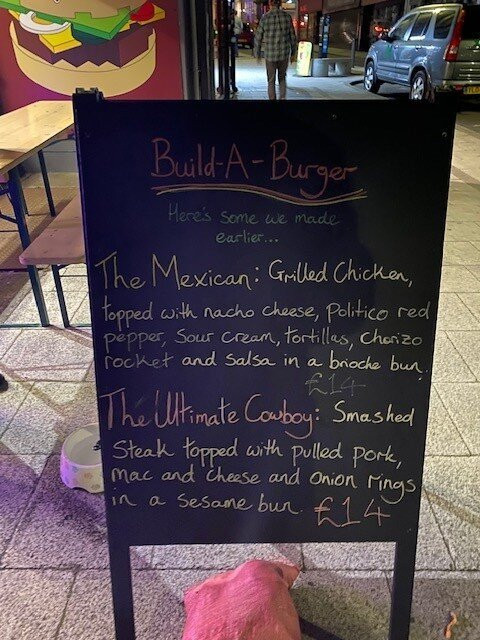 Build-A-Burger
Here's some we made
earlier...
The Mexican: Grilled Chicken,
topped with nacho cheese, Politico red
pepper, Sour Cream, tortillas, Chorizo
rocket and salsa in a brioche bun.
£14
The Ultimate Cowboy: Smashed
Steak topped with pulled pork,
mac and cheese and onion rings
in a sesame bun. £14